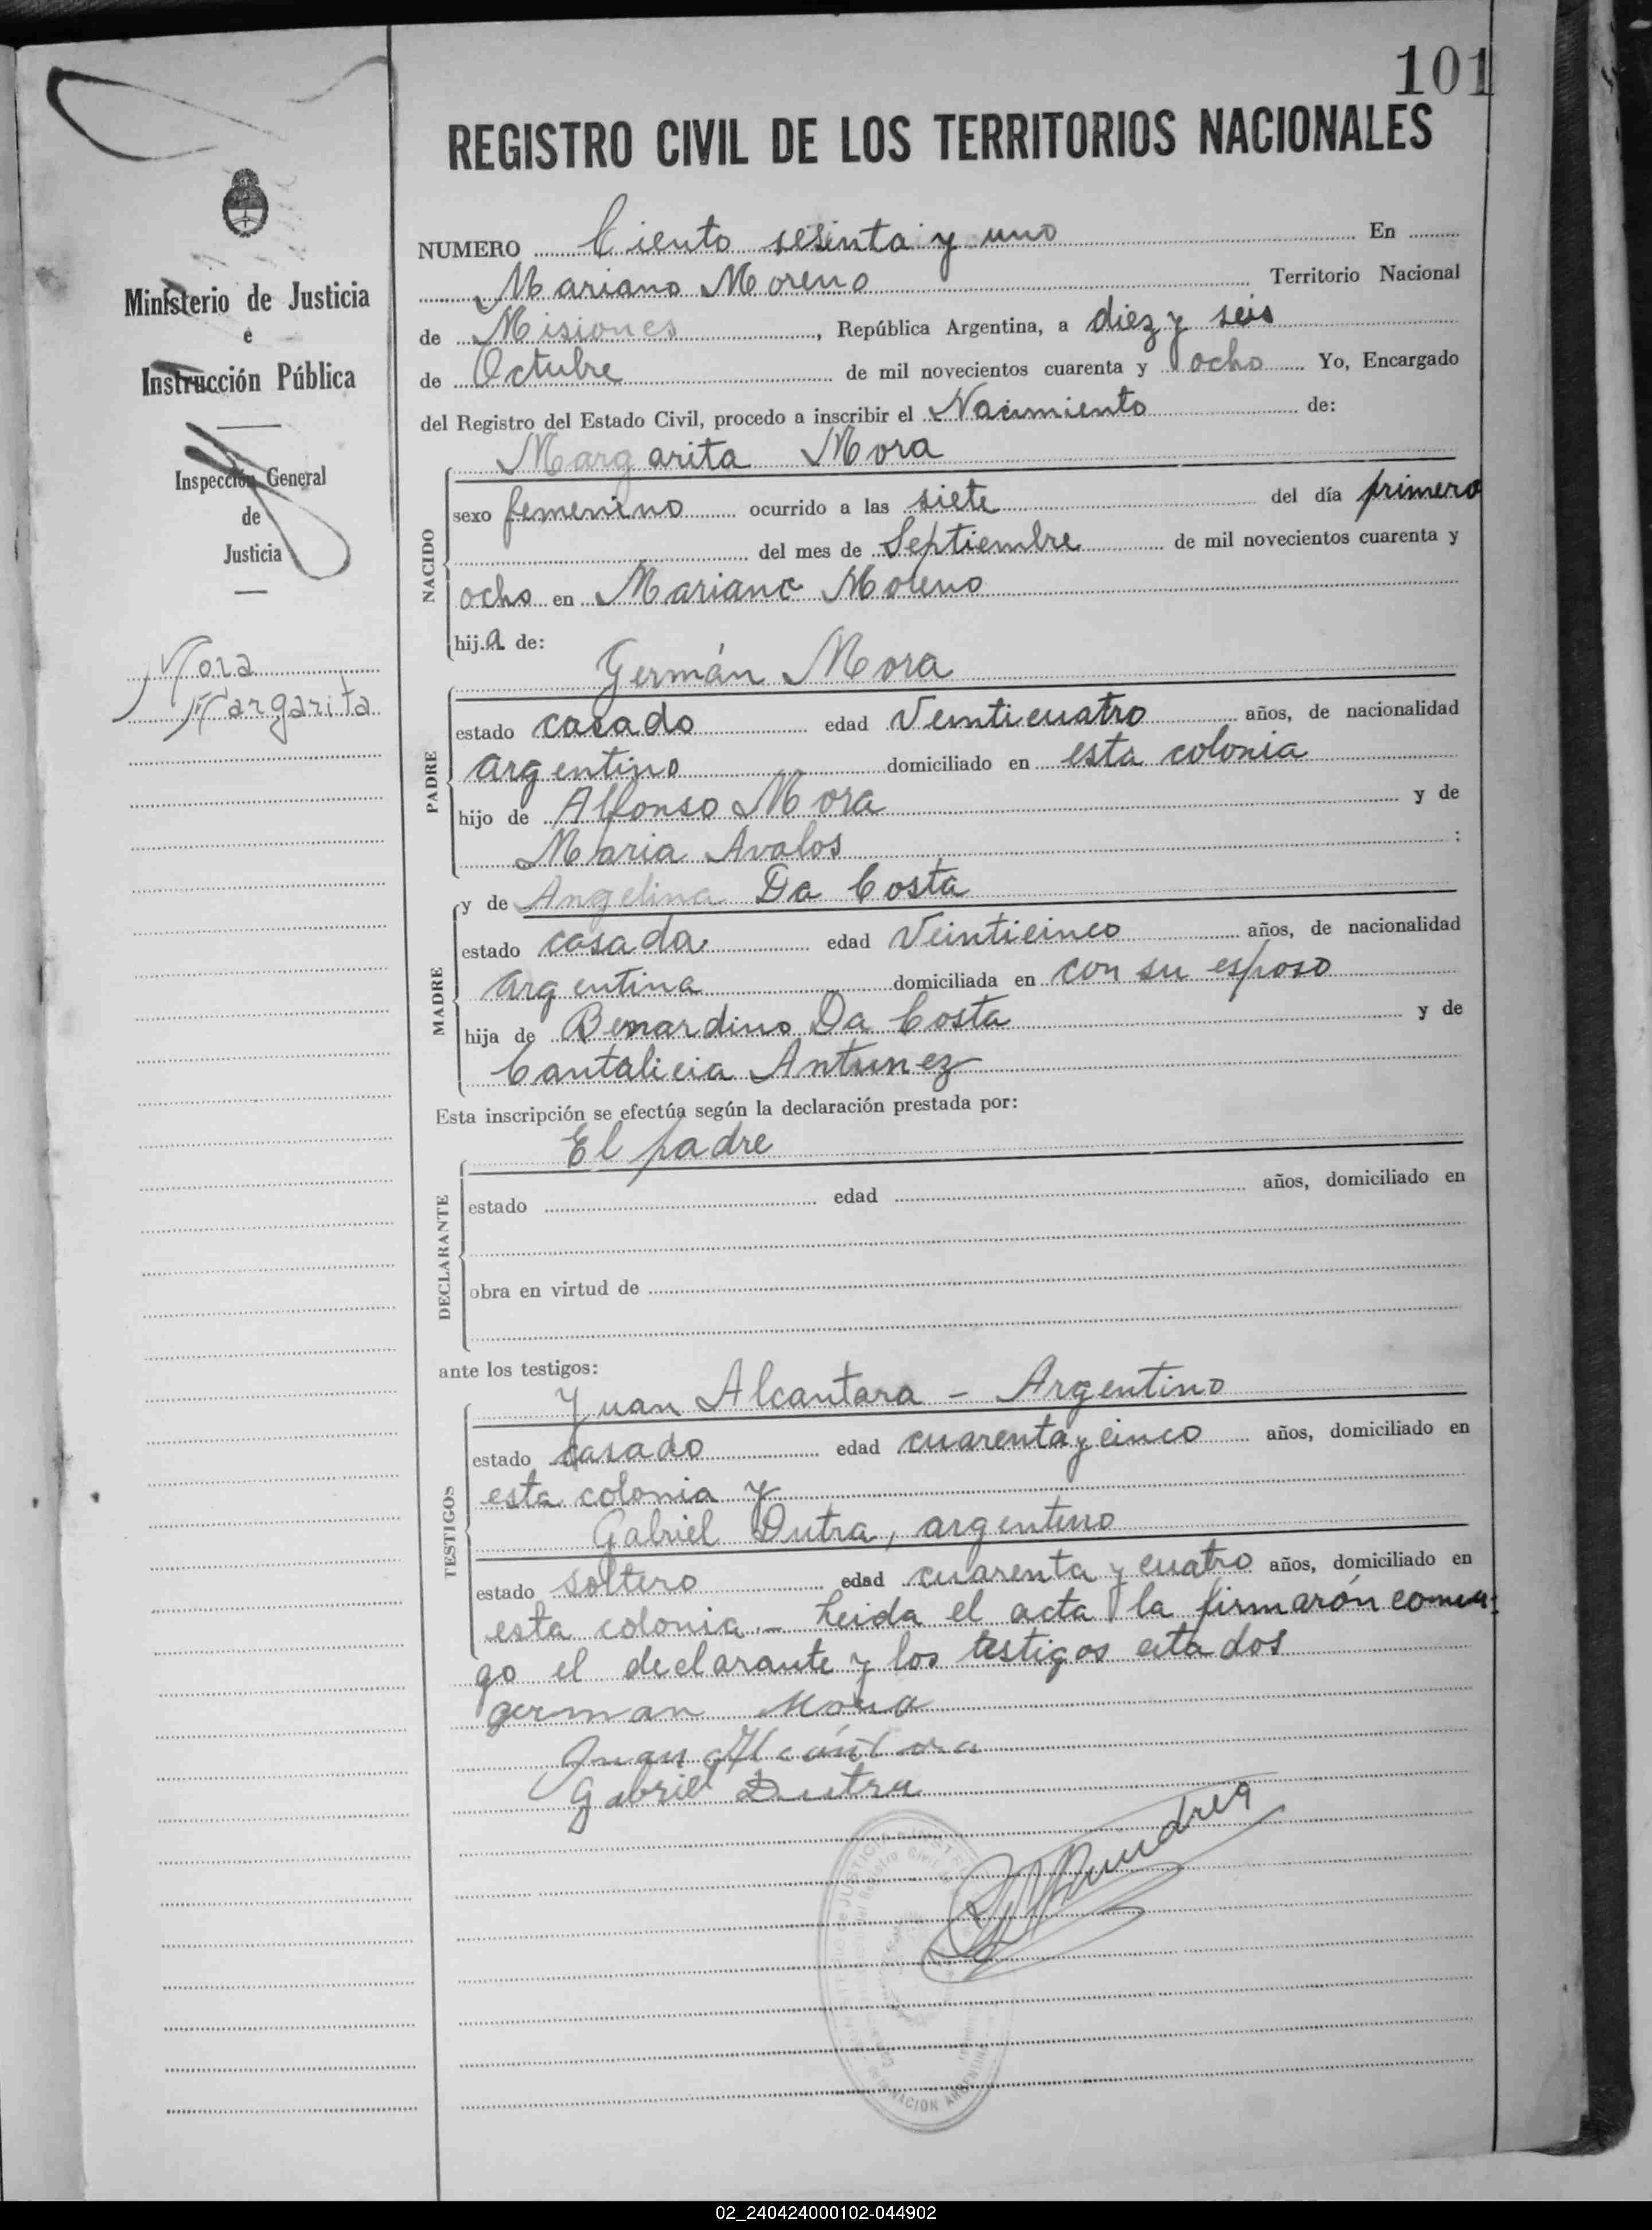 101
REGISTRO CIVIL DE LOS TERRITORIOS NACIONALES
Ministerio de Justicia
e
Instrucción Pública
Inspección General
de
Justicia
Mora
Margarita
NUMERO Ciento sesinta y uno En
Mariano Moreno Territorio Nacional
de Misiones, República Argentina, a diez y seis
de Octubre de mil novecientos cuarenta y ocho Yo, Encargado
del Registro del Estado Civil, procedo a inscribir el Nacimiento de:
NACIDO
Margarita Mora
sexo femenino ocurrido a las siete del día primero
del mes de Septiembre de mil novecientos cuarenta y
ocho en Mariano Moreno
hij.a de:
PADRE
Germán Mora
estado casado edad Veinticuatro años, de nacionalidad
argentino domiciliado en esta colonia
hijo de Alfonso Mora y de
Maria Avalos ;
MADRE
y de Angelina Da Costa
estado casada edad Veinticinco años, de nacionalidad
argentina domiciliada en con su esposo
hija de Benardino Da Costa y de
Cantalicia Antunez
Esta inscripción se efectúa según la declaración prestada por:
DECLARANTE
El padre
estado edad años, domiciliado en
obra en virtud de
ante los testigos:
TESTIGOS
Juan Alcantara - Argentino
estado casado edad cuarenta y cinco años, domiciliado en
esta colonia y
Gabriel Dutra, argentino
estado soltero edad cuarenta y cuatro años, domiciliado en
esta colonia.- Leida el acta la firmarón conmi-
go el declarante y los testigos citados
german Mora
Juan Alcántara
Gabriel Dutra
02_240424000102-044902